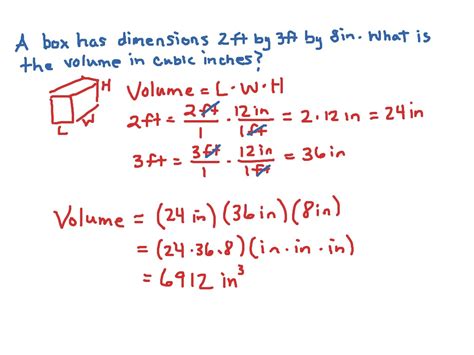 A box has dimensions 2ft by 3ft by 8in. What is
the volume in cubic inches?
H
W
L
Volume = L · W · H
2ft = 2ft/1 · 12in/1ft = 2 · 12in = 24in
3ft = 3ft/1 · 12in/1ft = 36in
Volume = (24 in)(36in)(8in)
= (24·36·8)(in · in · in)
= 6912 in³